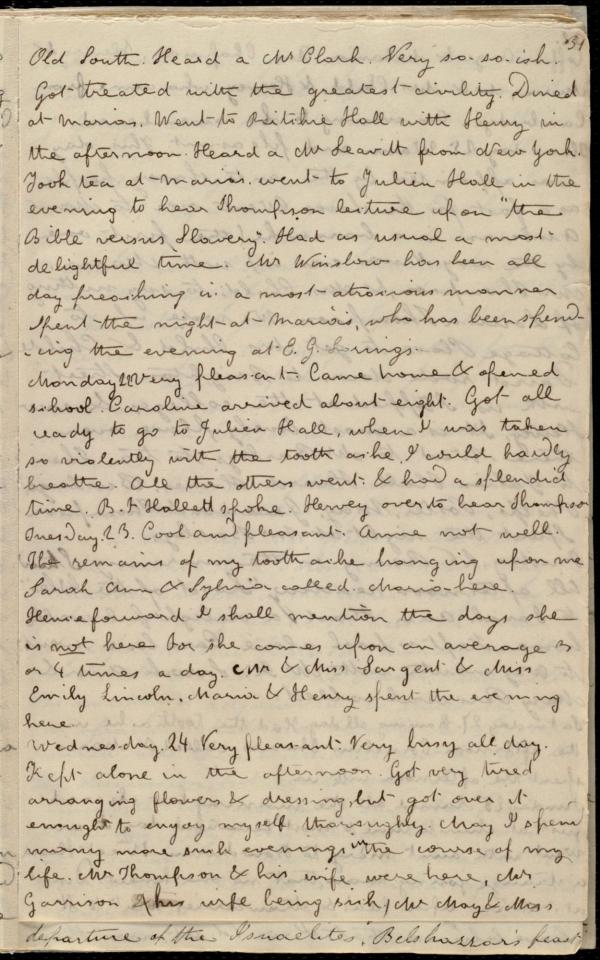 31
Old South. Heard a Mr Clark. Very so-so-ish.
Got treated with the greatest civility. Dined
at Marias. Went to Ritchie Hall with Henry in
the afternoon. Heard a Mr Leavitt from New York.
Took tea at Maria's. went to Julien Hall in the
evening to hear Thompson lecture upon "the
Bible versus Slavery". Had as usual a most
delightful time. Mr Winslow has been all
day preaching in a most atrocious manner
Spent the night at Maria's, who has been spend-
ing the evening at E. G. Lorings.
Monday 22 Very pleasant. Came home & opened
school. Caroline arrived about eight. Got all
ready to go to Julien Hall, when I was taken
so violently with the tooth ache, I could hardly
breathe. All the others went & had a splendid
time. B. F Hallett spoke. Hervey over to hear Thompson
Tuesday. 23. Cool and pleasant. Anne not well.
The remains of my tooth ache hanging upon me
Sarah Ann & Sylvia called. Maria here.
Henceforward I shall mention the days she
is not here for she comes upon an average 3
or 4 times a day. Mr & Miss Sargent & Miss
Emily Lincoln, Maria & Henry spent the evening
here
Wednesday. 24. Very pleasant. Very busy all day.
Kept alone in the afternoon. Got very tired
arranging flowers & dressing, but got over it
enough to enjoy myself thoroughly. May I spend
many more such evenings in the course of my
life. Mr Thompson & his wife were here, Mr
Garrison (his wife being sick) Mr May & Miss
departure of the Israelites, Belshazzar's feast